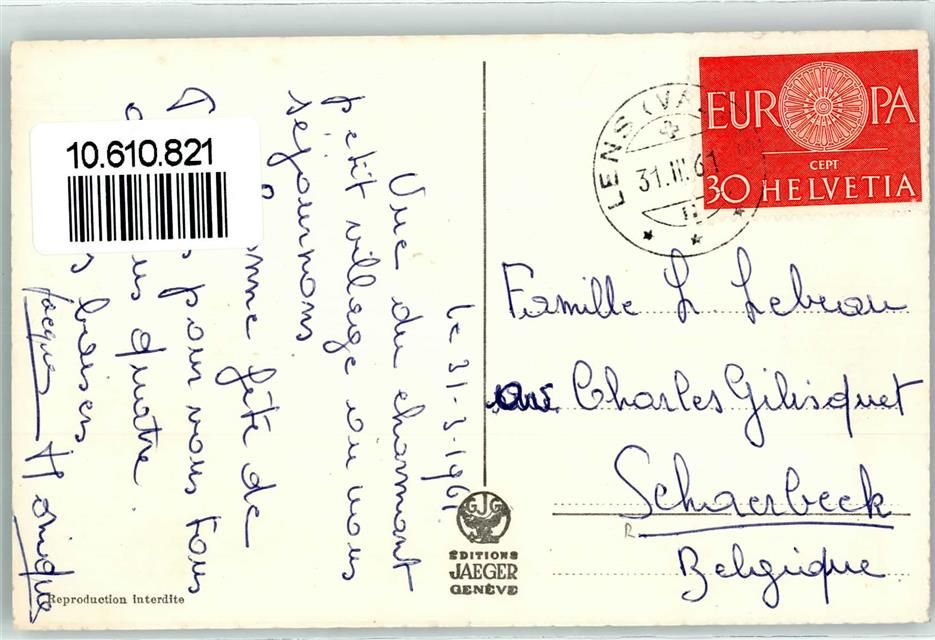 10.610.821
le 31-3-1961
Vue du charmant
petit village où nous
séjournons
Bonne fête de
pour vous tous
quatre.
baisers
Jacques Monique
LENS (VA
31.III.61
EUROPA
CEPT
30 HELVETIA
Famille L Lebeau
ave Charles Gilisquet
Schaerbeek
Belgique
GJG
ÉDITIONS
JAEGER
GENÈVE
Reproduction interdite